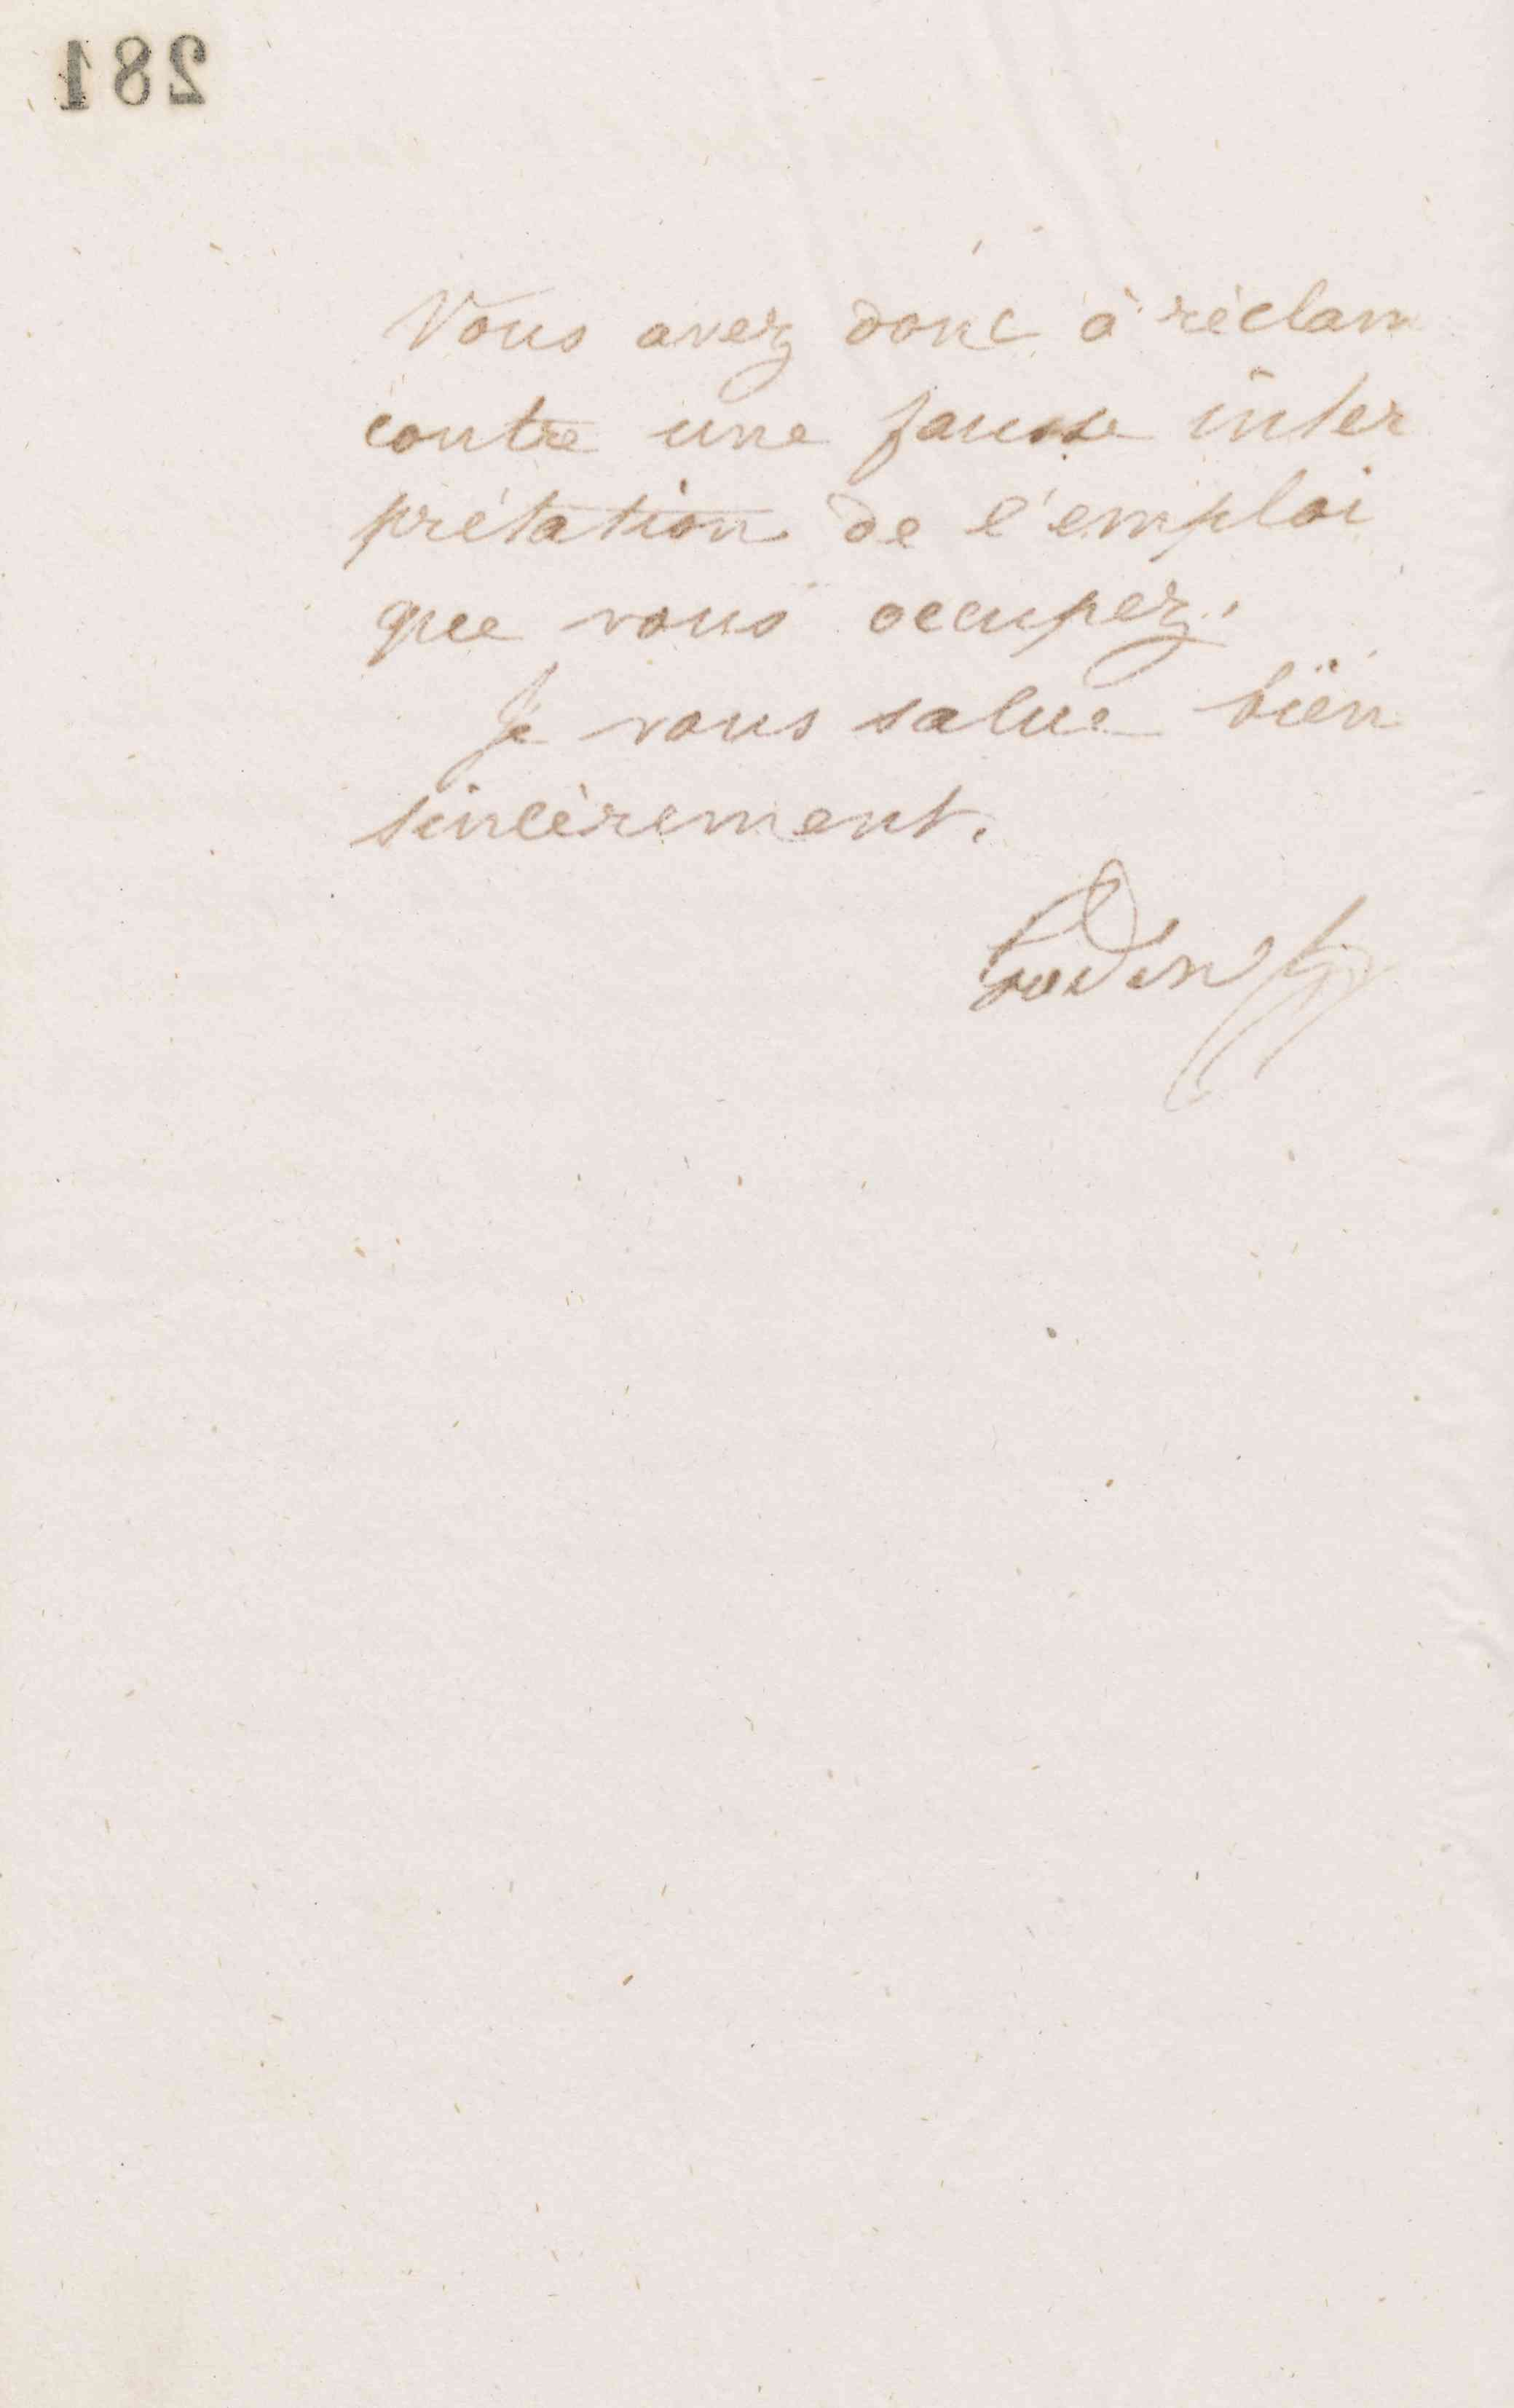 281
Vous avez donc à réclam
contre une fausse inter
prétation de l'emploi
que vous occupez.
Je vous salue bien
sincèrement.
Godin